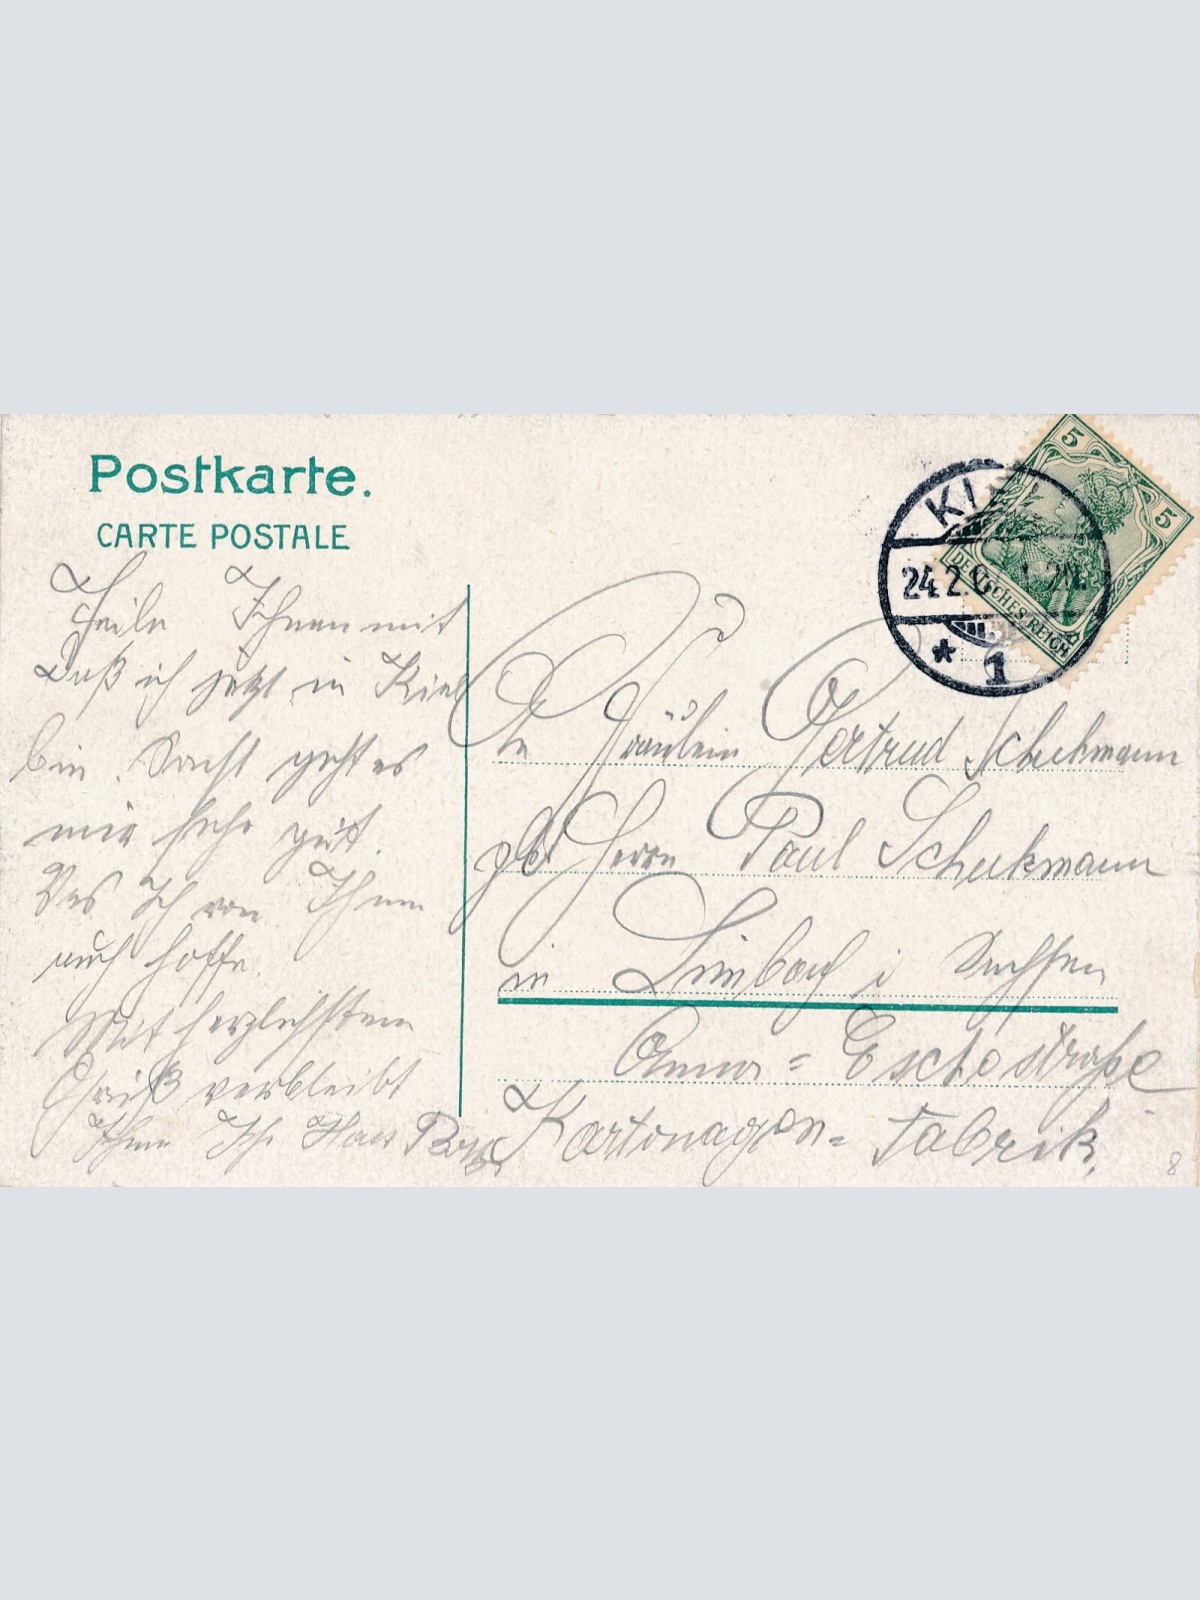 Postkarte.
CARTE POSTALE
Teile Ihnen mit
Daß ich jetzt in Kiel
bin. Sonst geht es
mir sehr gut.
Was Ich von Ihnen
auch hoffe.
Mit herzlichsten
Gruß verbleibt
Ihnen Ihr Hans
KIEL
24.2.
* 1
5
5
DEUTSCHES REICH
Fräulein Gertrud Schekmann
Herrn Paul Schekmann
in Limbach i Sachsen
Anna = Esche straße
Kartonagen = Fabrik.
8